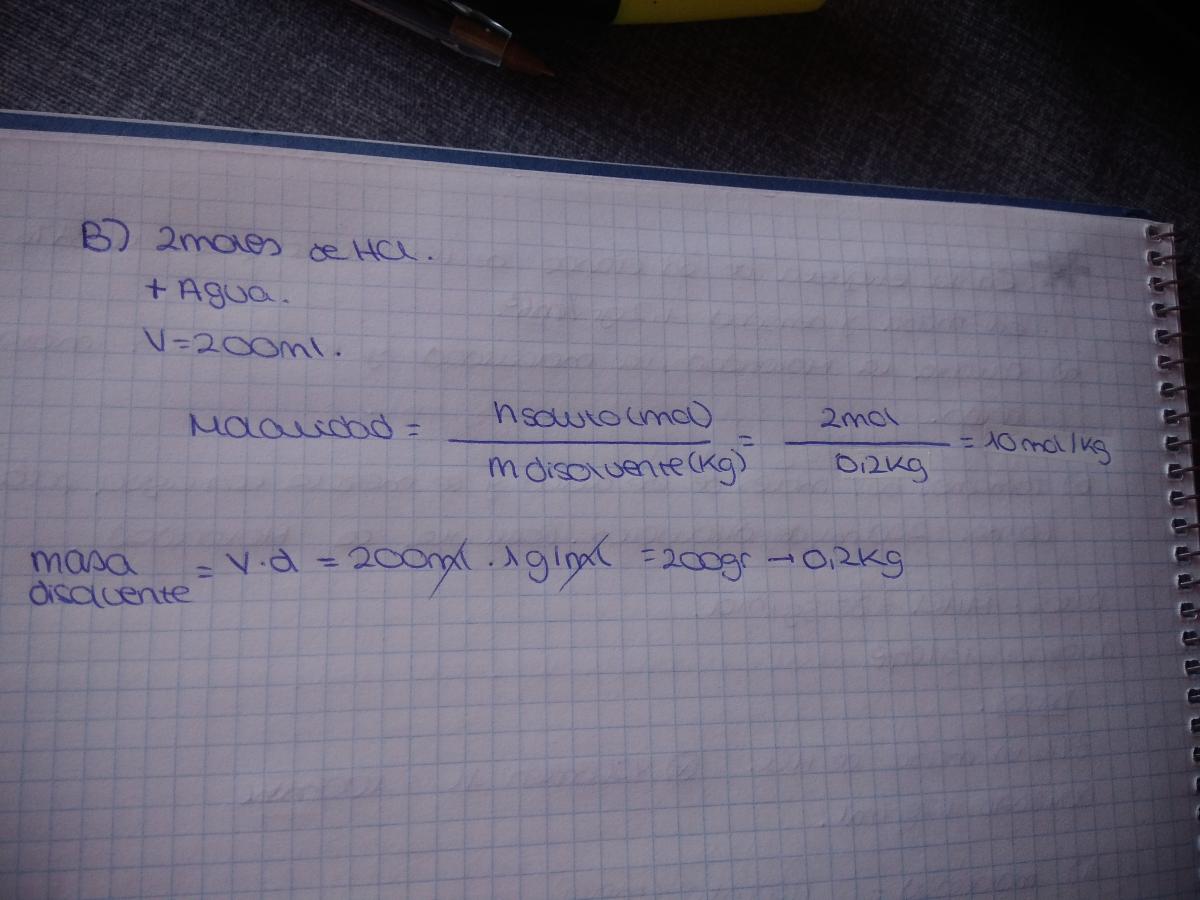 B) 2moles de HCl.
+ Agua.
V=200ml.
Molalidad = nsoluto(mol) / mdisolvente(Kg) = 2mol / 0,2Kg = 10mol/Kg
masa disolvente = V.d = 200ml . 1g/ml = 200gr → 0,2Kg